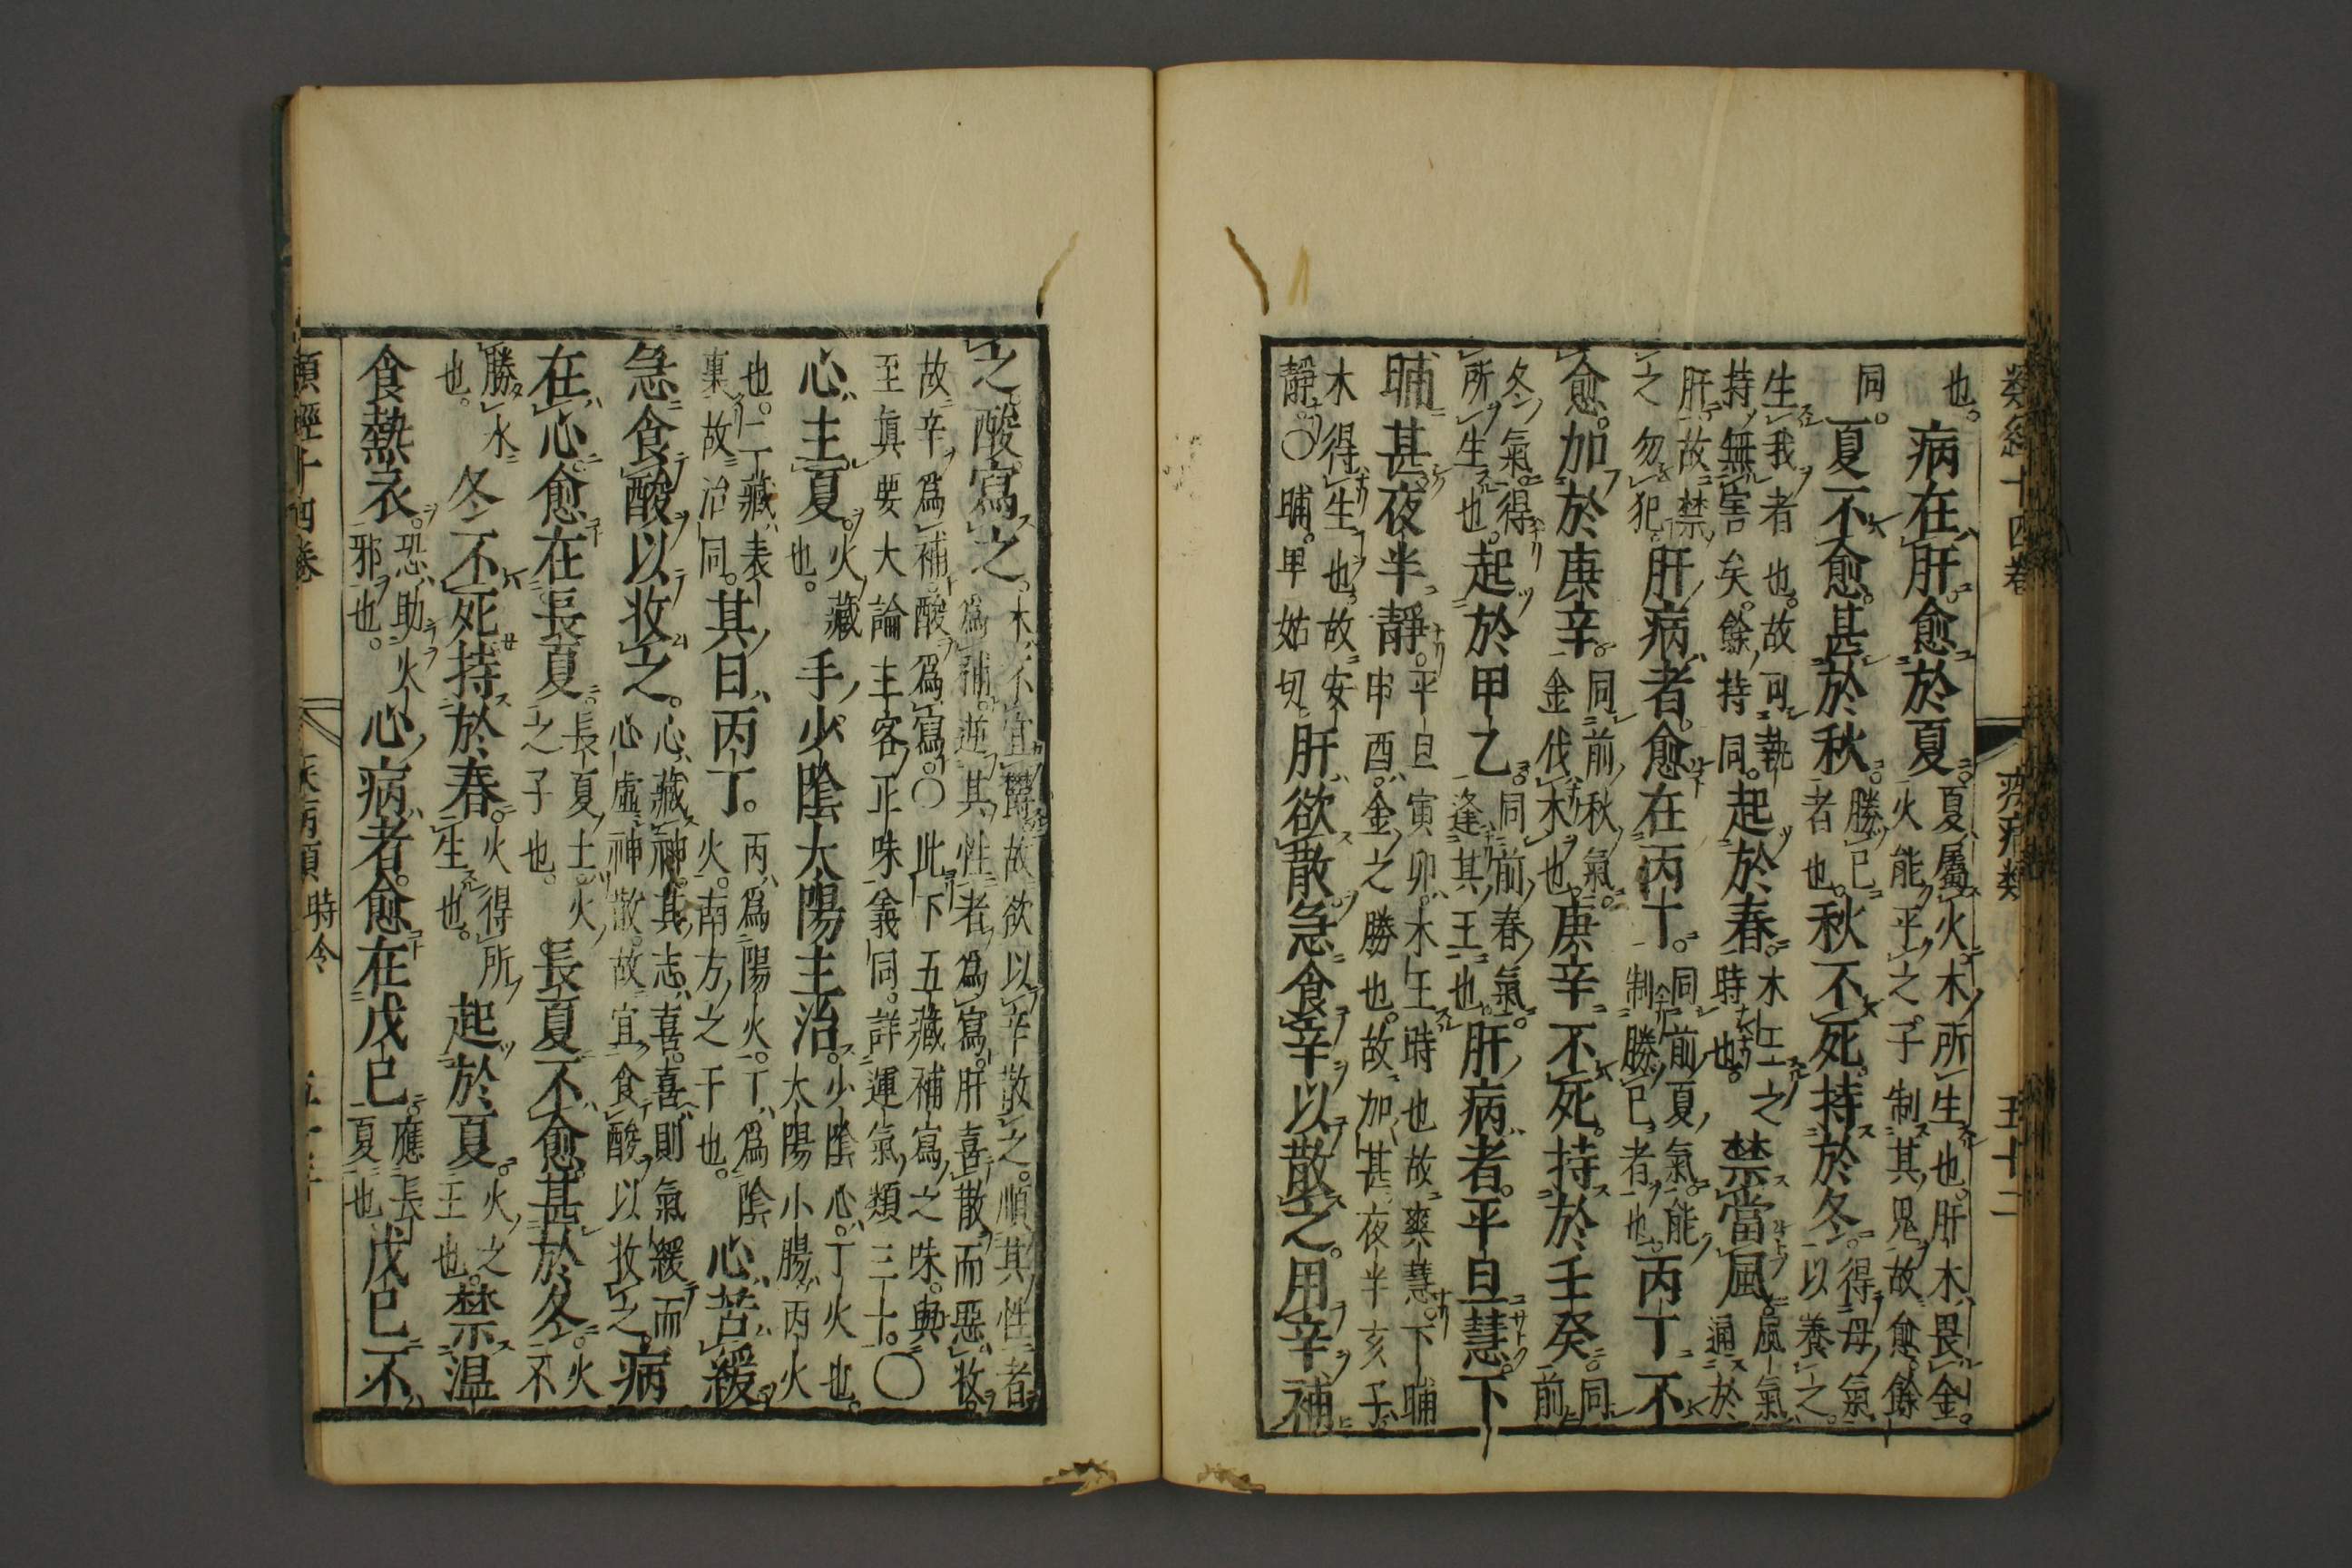 類經十四卷 疾病類 五十二
也。病在肝。愈於夏。夏屬火。木所生也。肝木畏金。火能平之。子制其鬼。故愈。餘
同。夏不愈。甚於秋。勝己者也。秋不死。持於冬。得母氣以養之。
生我者也。故可執持無害矣。餘持同。起於春。木王之時也。禁當風。風氣通於
肝故禁之勿犯。肝病者。愈在丙丁。同前夏氣。能制勝己者也。丙丁不
愈。加於庚辛。同前秋氣。金伐木也。庚辛不死。持於壬癸。同前
冬氣。得所生也。起於甲乙。同前春氣。逢其王也。肝病者。平旦慧。下
晡甚。夜半靜。平旦寅卯。木王時也。故爽慧。下晡申酉。金之勝也。故加甚。夜半亥子。
木得生也。故安靜。○晡。甲姑切。肝欲散。急食辛以散之。用辛補
之。酸寫之。木不宜鬱故欲以辛散之。順其性者爲補。逆其性者爲寫。肝喜散而惡收。
故辛爲補。酸爲寫。○此下五藏補寫之味。與至眞要大論主客正味義同。詳運氣類三十。○
心主夏。火藏也。手少陰太陽主治。少陰心。丁火也。太陽小腸。丙火
也。二藏表裏故治同。其日丙丁。丙爲陽火。丁爲陰火。南方之干也。心苦緩
急食酸以收之。心藏神。其志喜。喜則氣緩而心虛神散。故宜食酸以收之。病
在心愈在長夏。長夏土。火之子也。長夏不愈。甚於冬。火不
勝水也。冬不死持於春。火得所生也。起於夏。火之王也。禁溫
食熱衣。恐助火邪也。心病者。愈在戊己。應長夏也。戊己不
類經十四卷 疾病類 時令